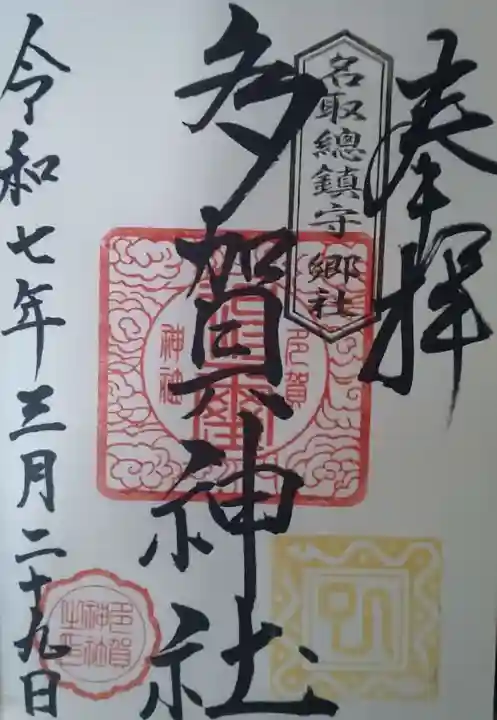 奉拝
名取總鎮守郷社
多賀神社
令和七年三月二十九日
多賀
神社
多賀
神社